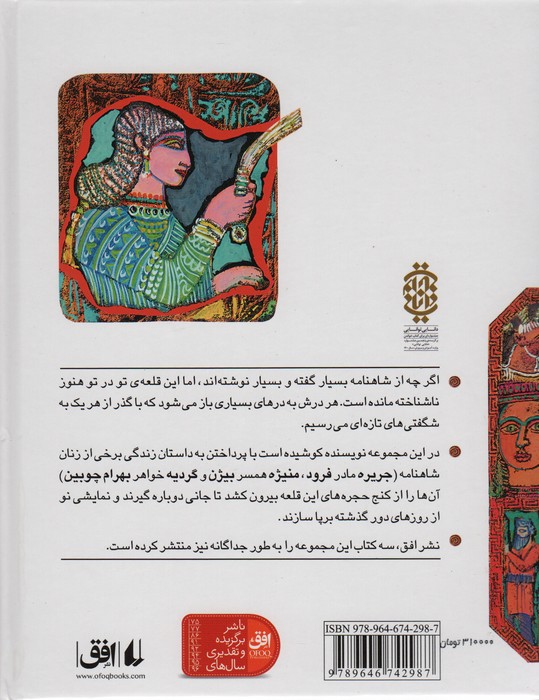 دانایی توانایی
اگر چه از شاهنامه بسیار گفته و بسیار نوشته‌اند، اما این قلعه‌ی تو در تو هنوز
ناشناخته مانده است. هر درش به درهای بسیاری باز می‌شود که با گذر از هر یک به
شگفتی‌های تازه‌ای می‌رسیم.
در این مجموعه نویسنده کوشیده است با پرداختن به داستان زندگی برخی از زنان
شاهنامه (جریره مادر فرود، منیژه همسر بیژن و گردیه خواهر بهرام چوبین)
آن‌ها را از کنج حجره‌های این قلعه بیرون کشد تا جانی دوباره گیرند و نمایشی نو
از روزهای دور گذشته برپا سازند.
نشر افق، سه کتاب این مجموعه را به طور جداگانه نیز منتشر کرده است.
نشر افق
www.ofoqbooks.com
ناشر
برگزیده
و تقدیری
سال‌های
افق
OFOQ
ISBN 978-964-674-298-7
9 789646 742987
۳۱۰۰۰۰ تومان